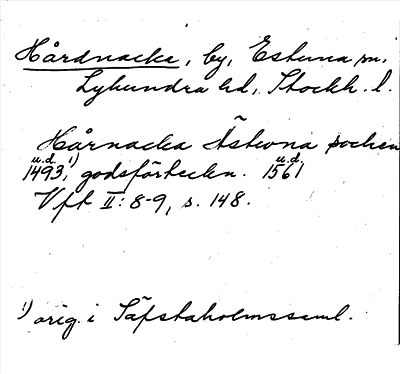 Hårdnacka, by, Estuna sn,
Lyhundra hd, Stockh. l.
Hårnacka Ästwna sochen
u.d. u.d.
1493,¹) godsförteckn. 1561
Vft II: 8-9, s. 148.
¹) orig. i Säfstaholmssaml.